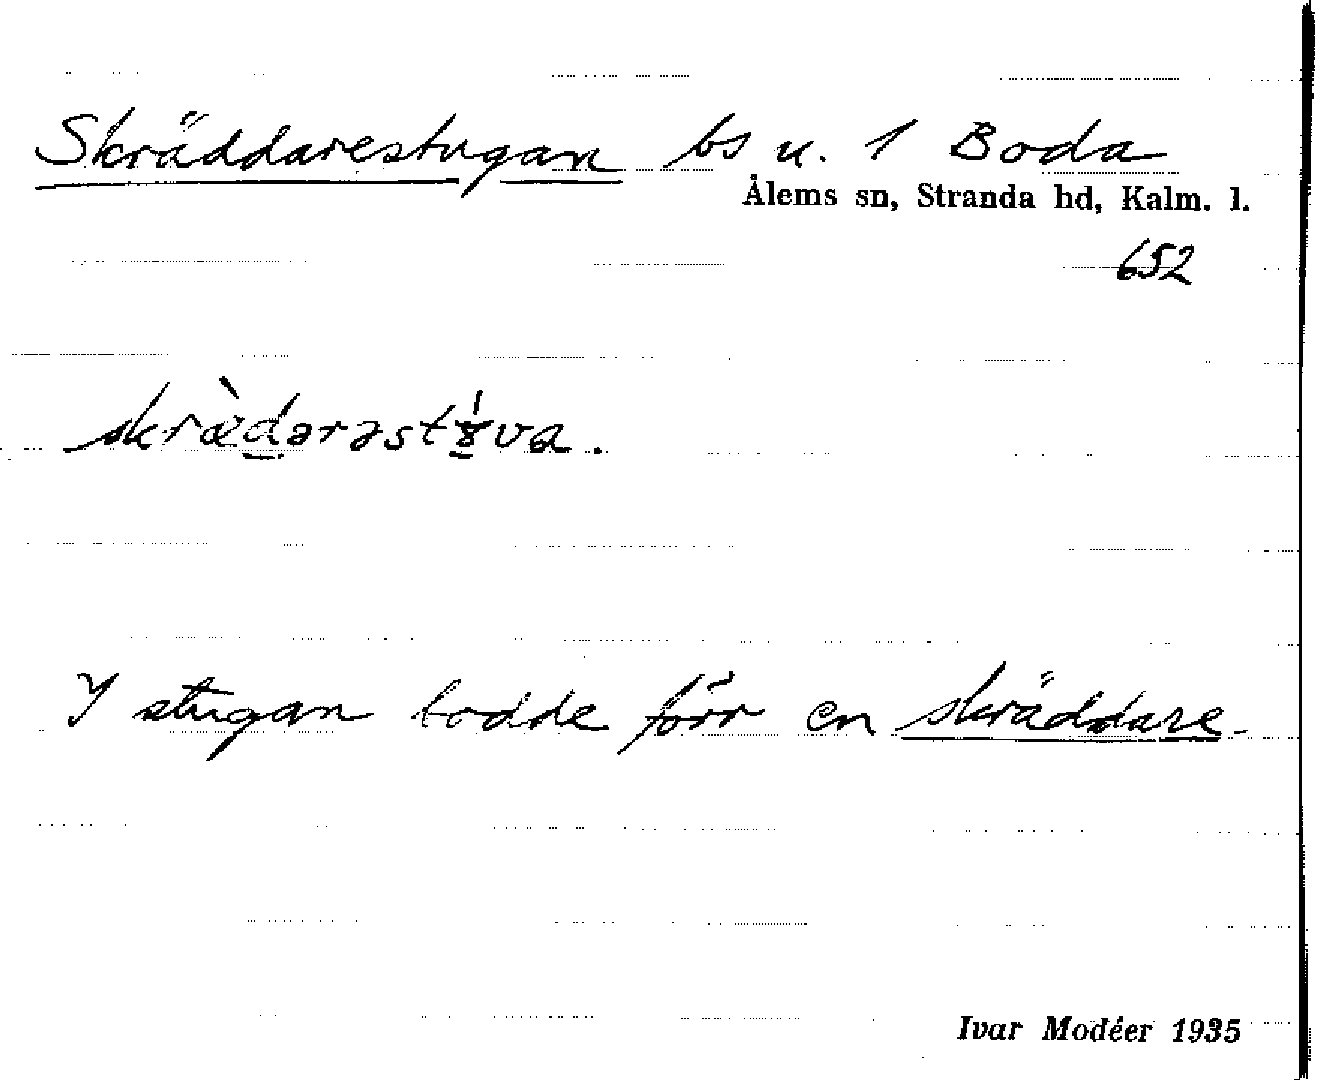 Skräddarestugan bs u. 1 Boda
Ålems sn, Stranda hd, Kalm. l.
652
I stugan bodde förr en skräddare.
Ivar Modéer 1935